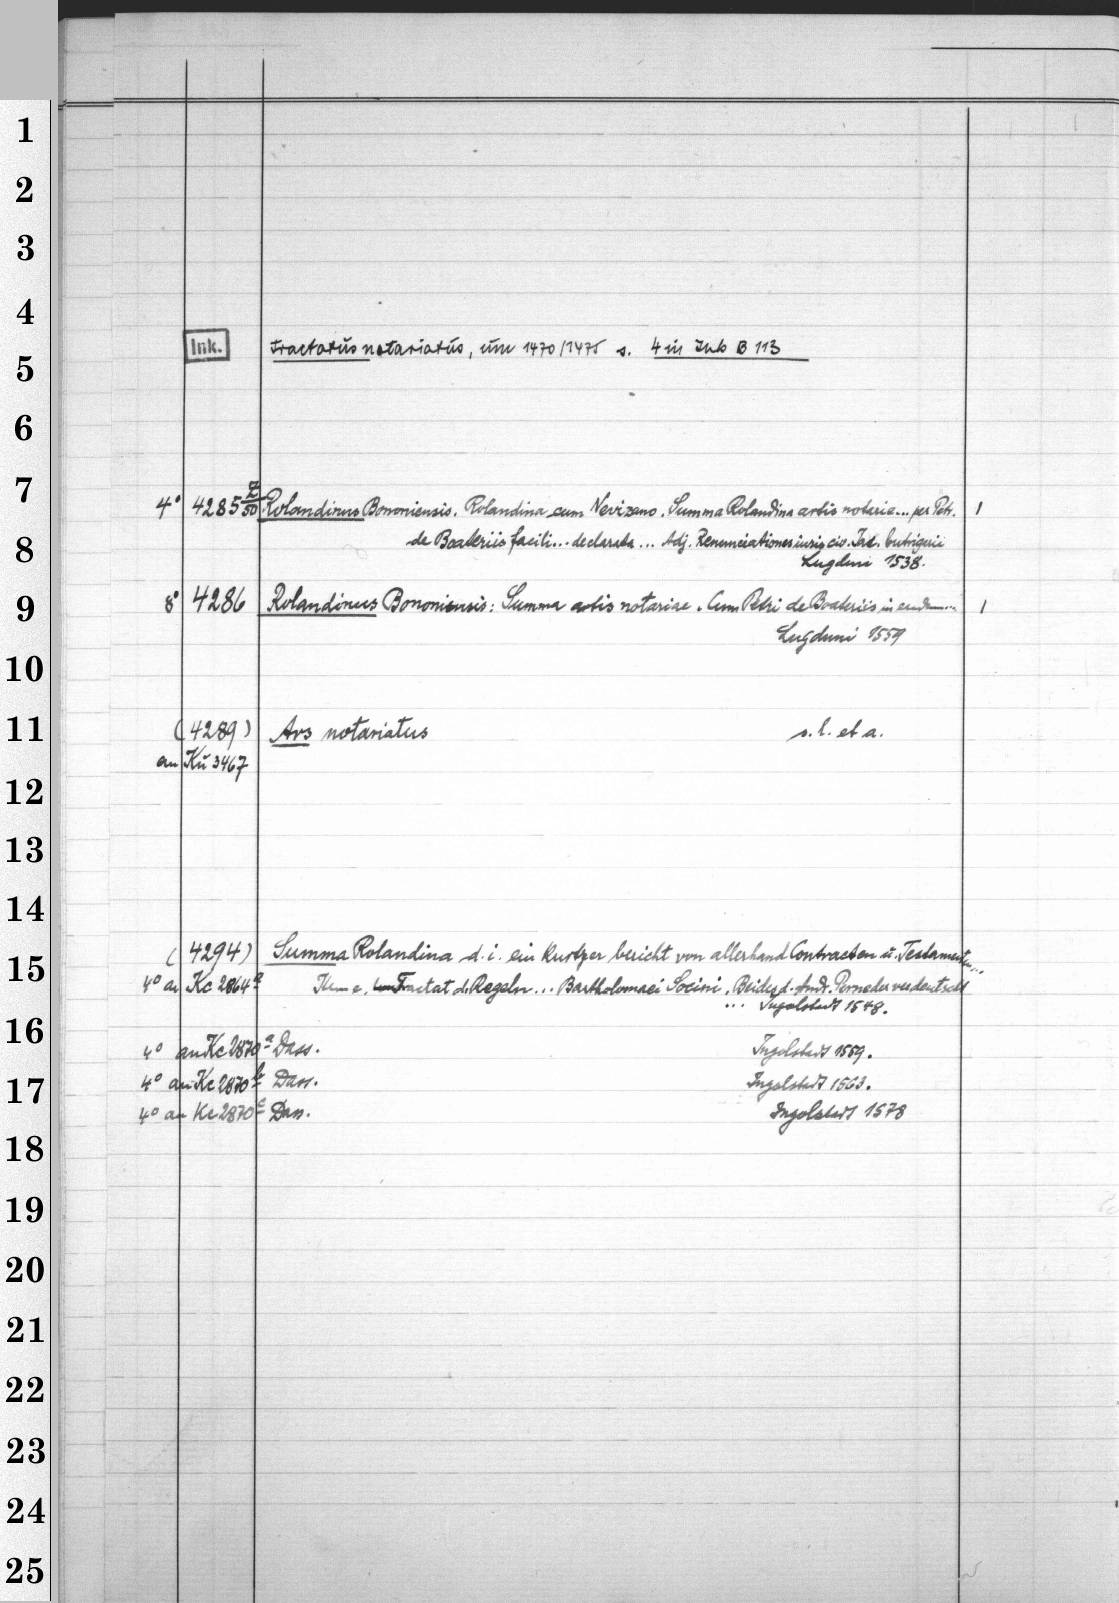 1
2
3
4
Ink. Tractatus notariatus, um 1470/1475 s. 4 in Ink B 113
5
6
7
4° 4285 Z/50 Rolandinus Bononiensis. Rolandina cum Nevizano. Summa Rolandina artis notarie... per Petr. 1
8 de Boateriis facili... declarata ... Adj. Renunciationes iuris civ. Jac. butrigarii
Lugduni 1538.
9 8° 4286 Rolandinus Bononiensis: Summa artis notariae. Cum Petri de Boateriis in 1
Lugduni 1559
10
11 (4289) Ars notariatus s. l. et a.
an Kü 3467
12
13
14
(4294) Summa Rolandina d. i. ein kurtzer bericht von allerhand Contracten u. Testamenten...
15
4° an Kc 2864a Tractat d. Regeln ... Bartholomaei Socini, Beides d. Andr. Perneder verdeutscht
... Ingolstadt 1548.
16
4° an Kc 2870a Dass. Ingolstadt 1559.
17 4° an Kc 2870b Dass. Ingolstadt 1563.
4° an Kc 2870c Dass. Ingolstadt 1578
18
19
20
21
22
23
24
25